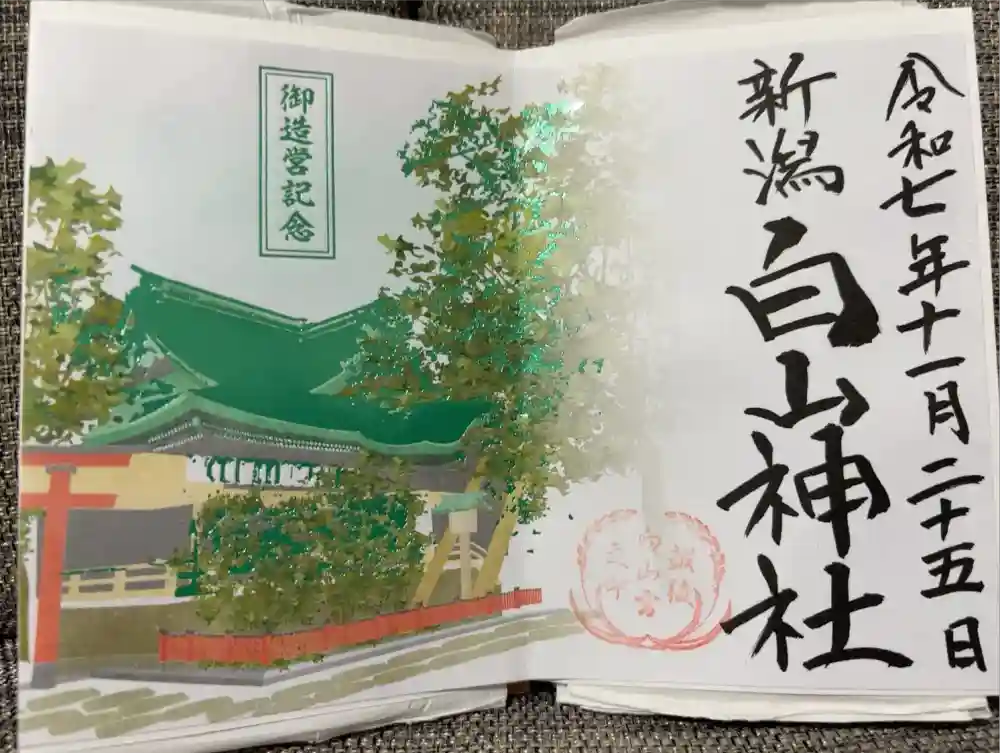 令和七年十一月二十五日
新潟白山神社
御造営記念